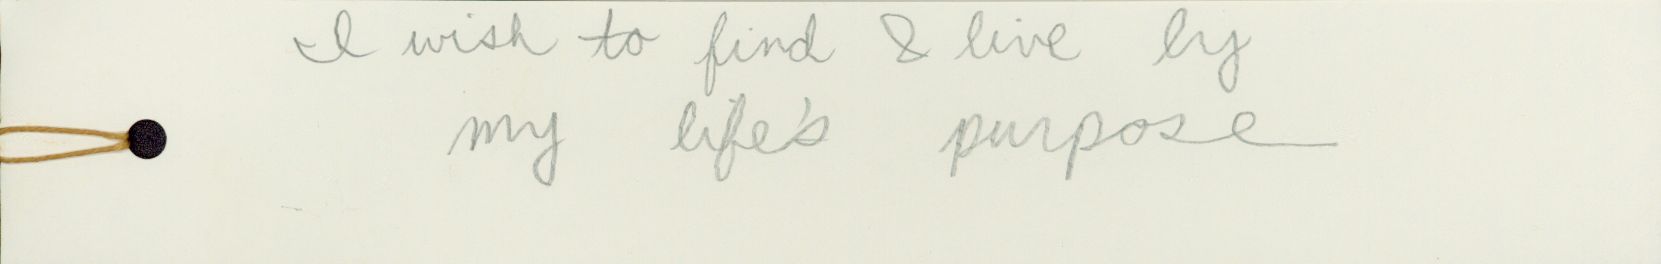 I wish to find & live by
my life's purpose